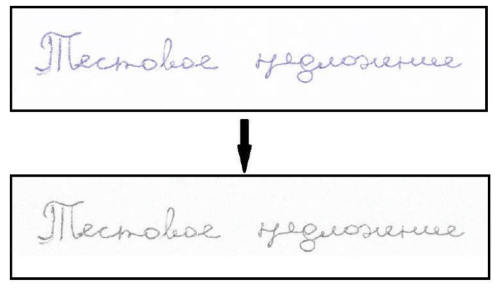 Тестовое предложение
Тестовое предложение